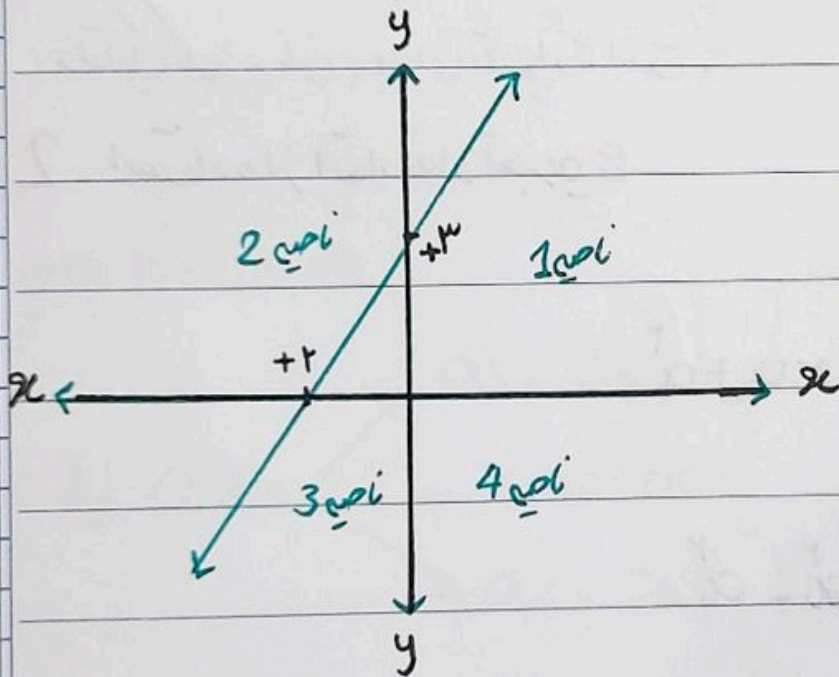 y
ناحیه 2
ناحیه 1
+۳
+۲
x
x
ناحیه 3
ناحیه 4
y